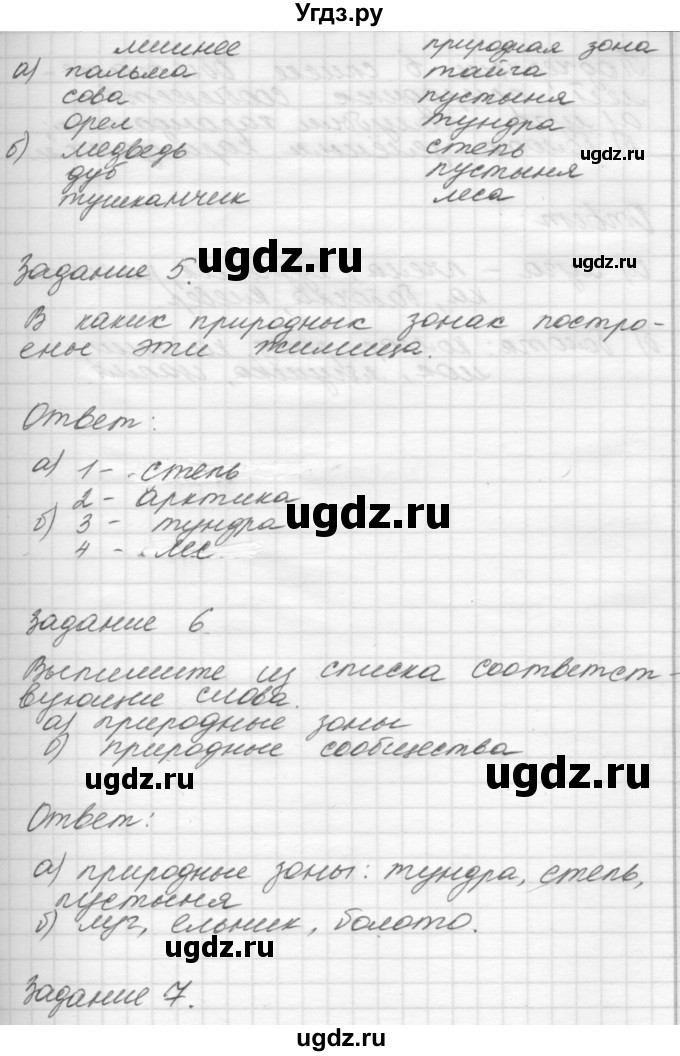 Угдз.ру
лишнее природная зона
а) пальма тайга
сова пустыня
орел тундра
б) медведь степь
ugdz.ru
дуб пустыня
тушканчик леса
ugdz.ru
Задание 5.
ugdz.ru
В каких природных зонах постро-
ены эти жилища.
Ответ:
а) 1 - степь
2 - арктика
б) 3 - тундра
ugdz.ru
4 - лес.
Задание 6
Выпишите из списка соответст-
вующие слова.
а) природные зоны
б) природные сообщества
ugdz.ru
ugdz.ru
Ответ:
а) природные зоны: тундра, степь,
пустыня
б) луг, ельник, болото.
ugdz.ru
Задание 7.
ugdz.ru